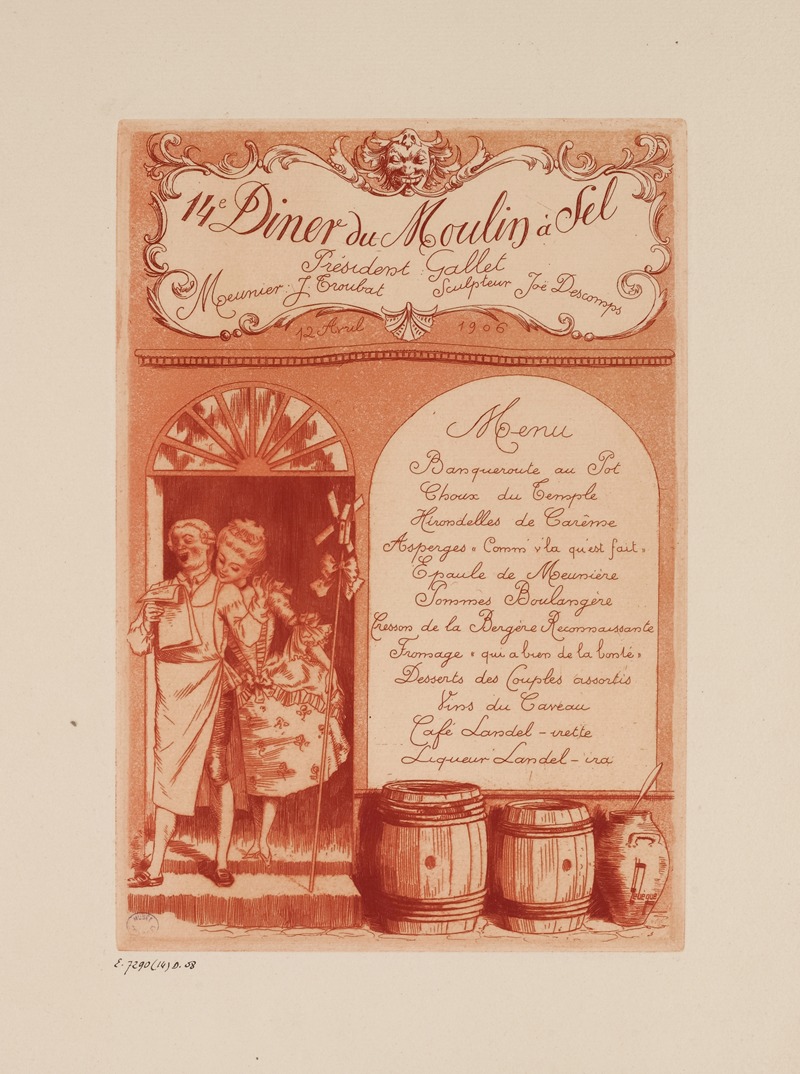 14e Diner du Moulin à Sel
Président : Gallet
Meunier : J. Troubat Sculpteur Joé Descomps
12 Avril 1906
Menu
Banqueroute au Pot
Choux du Temple
Hirondelles de Carême
Asperges « Comm' v'la qu'est fait »
Epaule de Meunière
Pommes Boulangère
Cresson de la Bergère Reconnaissante
Fromage « qui a bien de la bonté »
Desserts des Couples assortis
Vins du Caveau
Café Landel - irette
Liqueur Landel - ira
E. 7290 (14) D. 58